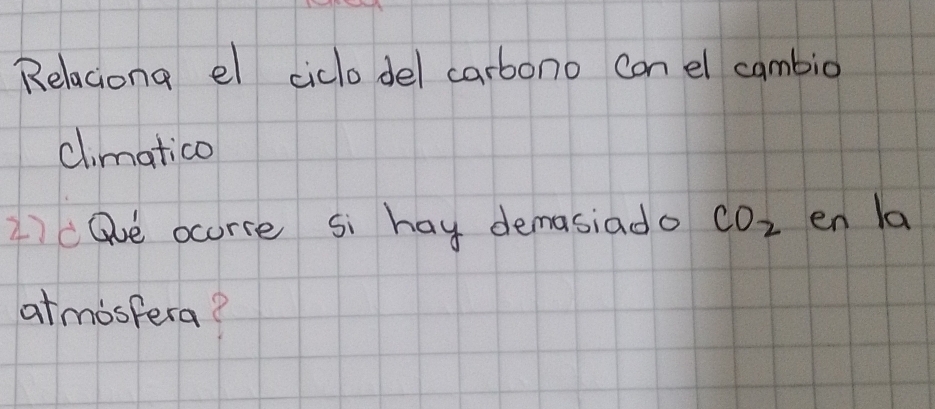 Relaciona el ciclo del carbono con el cambio
climatico
2) ¿Qué ocurre si hay demasiado CO₂ en la
atmósfera?